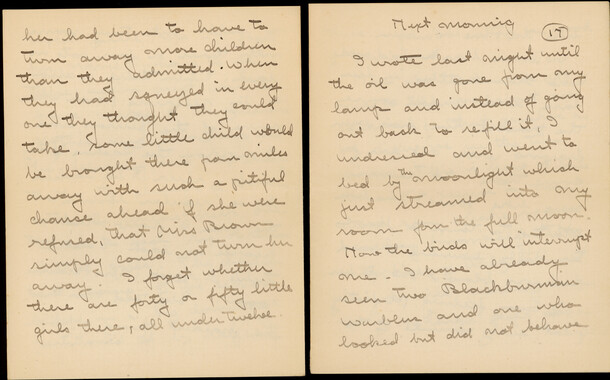 her had been to have to
turn away more children
than they admitted. When
they had squeezed in every
one they thought they could
take, some little child would
be brought there from miles
away with such a pitiful
chance ahead if she were
refused, that Miss Brown
simply could not turn her
away. I forget whether
there are forty or fifty little
girls there, all under twelve.
Next morning
17
I wrote last night until
the oil was gone from my
lamp and instead of going
out back to refill it, I
undressed and went to
bed by the moonlight which
just streamed into my
room from the full moon.
Now the birds will interrupt
me - I have already
seen two Blackburnian
warblers and one who
looked but did not behave